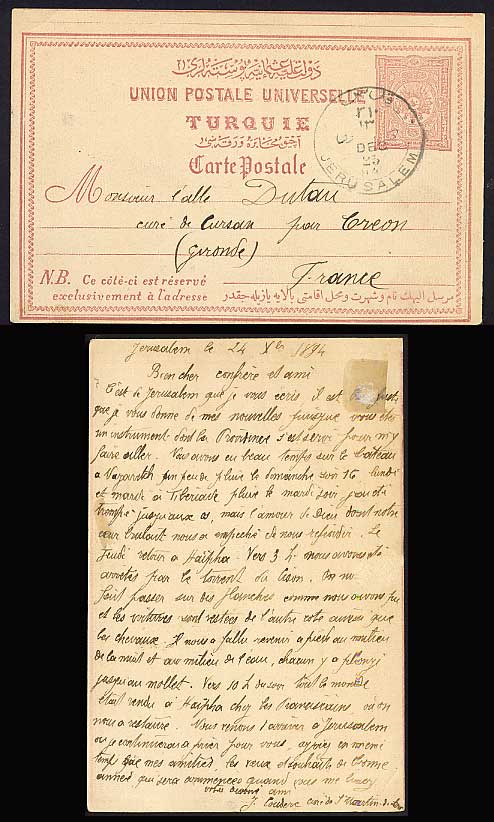 دولت عليه عثمانيه پوسته لرى
UNION POSTALE UNIVERSELLE
TURQUIE
Carte Postale
JERUSALEM
DEC
Monsieur l'abbé Dutau
curé de Cursan par Créon
(Gironde)
France
N.B. Ce côté-ci est réservé
exclusivement à l'adresse
Jerusalem le 24 Xb 1894
Bien cher confrère et ami
C'est de Jerusalem que je vous ecris il est
que je vous donne de mes nouvelles puisque vous etes
un instrument dont la Providence s'est servi pour m'y
faire aller. Nous avons eu beau temps sur le bateau
a Nazareth un peu de pluie le dimanche soir 16 lundi
et mardi a Tiberiade pluie le mardi soir
trempé jusqu'aux os, mais l'amour de Dieu dont notre
cœur brulait nous a empeché de nous refroidir. Le
Jeudi retour a Haipha. Vers 3 h. nous avons été
arretés par le torrent du Cison. On
fait passer sur des planches comme nous avons pu
et les voitures sont restées de l'autre coté ainsi que
les chevaux. Il nous a fallu revenir a pied au milieu
de la nuit et au milieu de l'eau, chacun y a plongé
jusqu'au mollet. Vers 10 h du soir tout le monde
était rendu a Haipha chez les Franciscains où on
nous a restauré. Nous venons d'arriver a Jerusalem
ou je continuerai a prier pour vous, agréez en meme
temps que mes amitiés, les vœux et souhaits de bonne
année qui sera commencée quand vous me lirez
votre devoué ami
J. Couderc curé de St Martin de